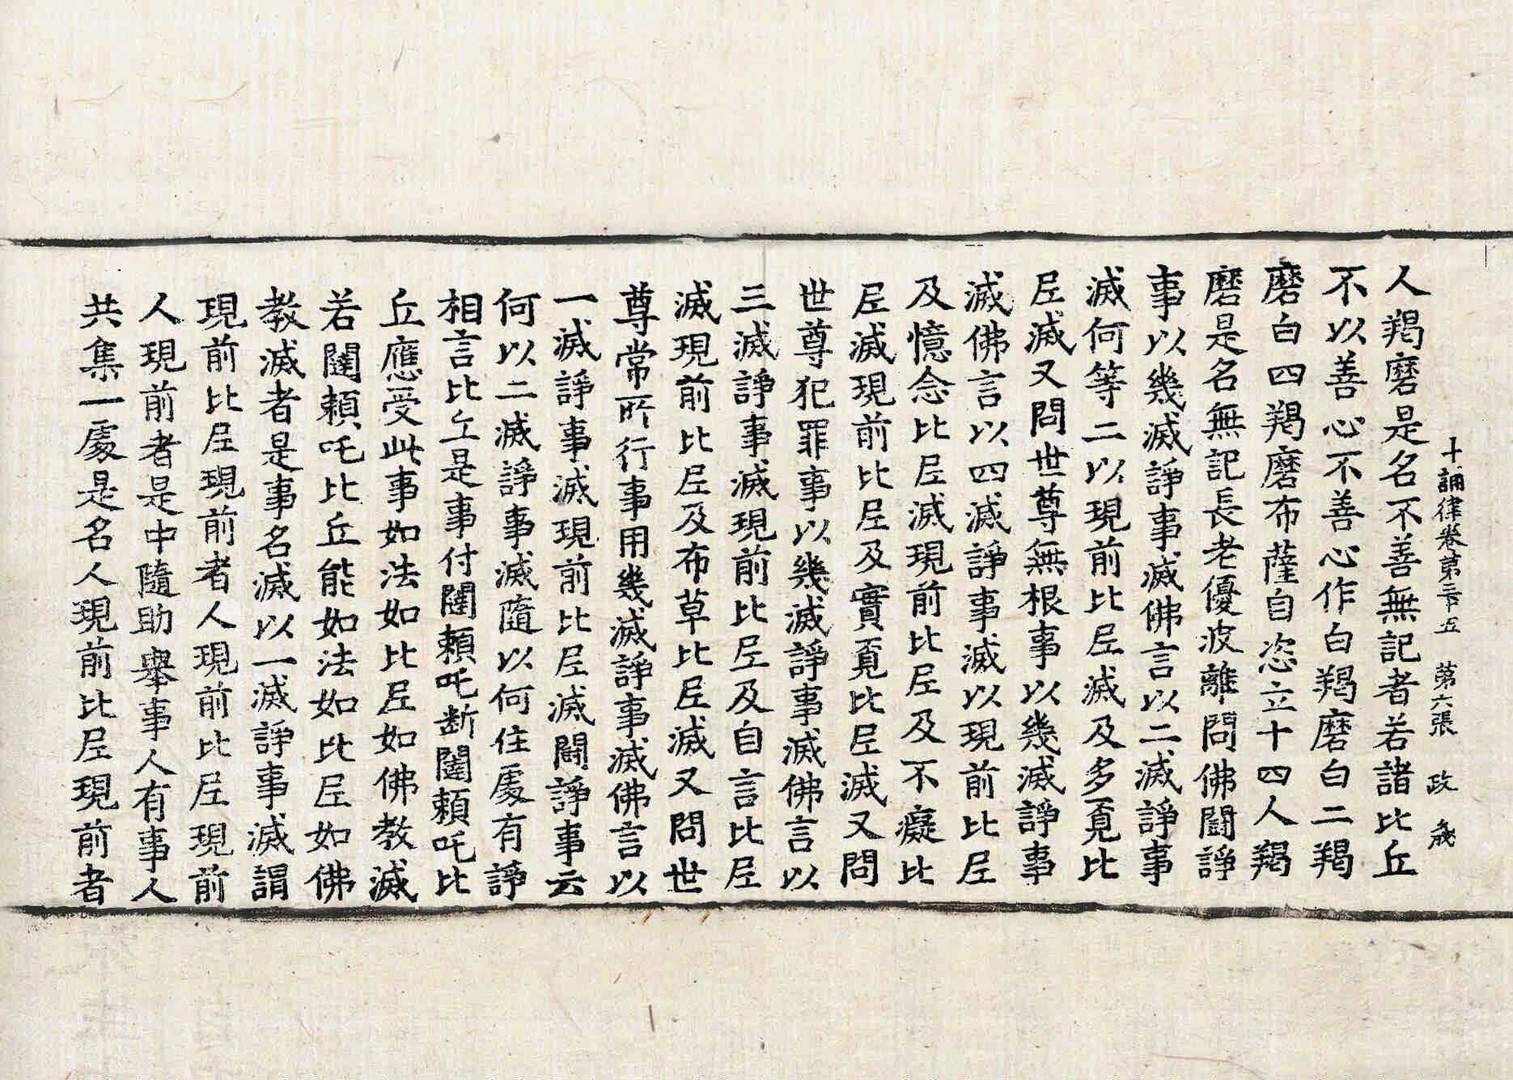 十誦律卷第三十五 苐六張 政
人羯磨是名不善無記者若諸比丘
不以善心不善心作白羯磨白二羯
磨白四羯磨布薩自恣立十四人羯
磨是名無記長老優波離問佛鬪諍
事以幾滅諍事滅佛言以二滅諍事
滅何等二以現前比尼滅及多覓比
尼滅又問世尊無根事以幾滅諍事
滅佛言以四滅諍事滅以現前比尼
及憶念比尼滅現前比尼及不癡比
尼滅現前比尼及實覓比尼滅又問
世尊犯罪事以幾滅諍事滅佛言以
三滅諍事滅現前比尼及自言比尼
滅現前比尼及布草比尼滅又問世
尊常所行事用幾滅諍事滅佛言以
一滅諍事滅現前比尼滅鬪諍事云
何以二滅諍事滅隨以何住處有諍
相言比丘是事付闥賴吒斷闥賴吒比
丘應受此事如法如比尼如佛教滅
若闥賴吒比丘能如法如比尼如佛
教滅者是事名滅以一滅諍事滅謂
現前比尼現前者人現前比尼現前
人現前者是中隨助舉事人有事人
共集一處是名人現前比尼現前者